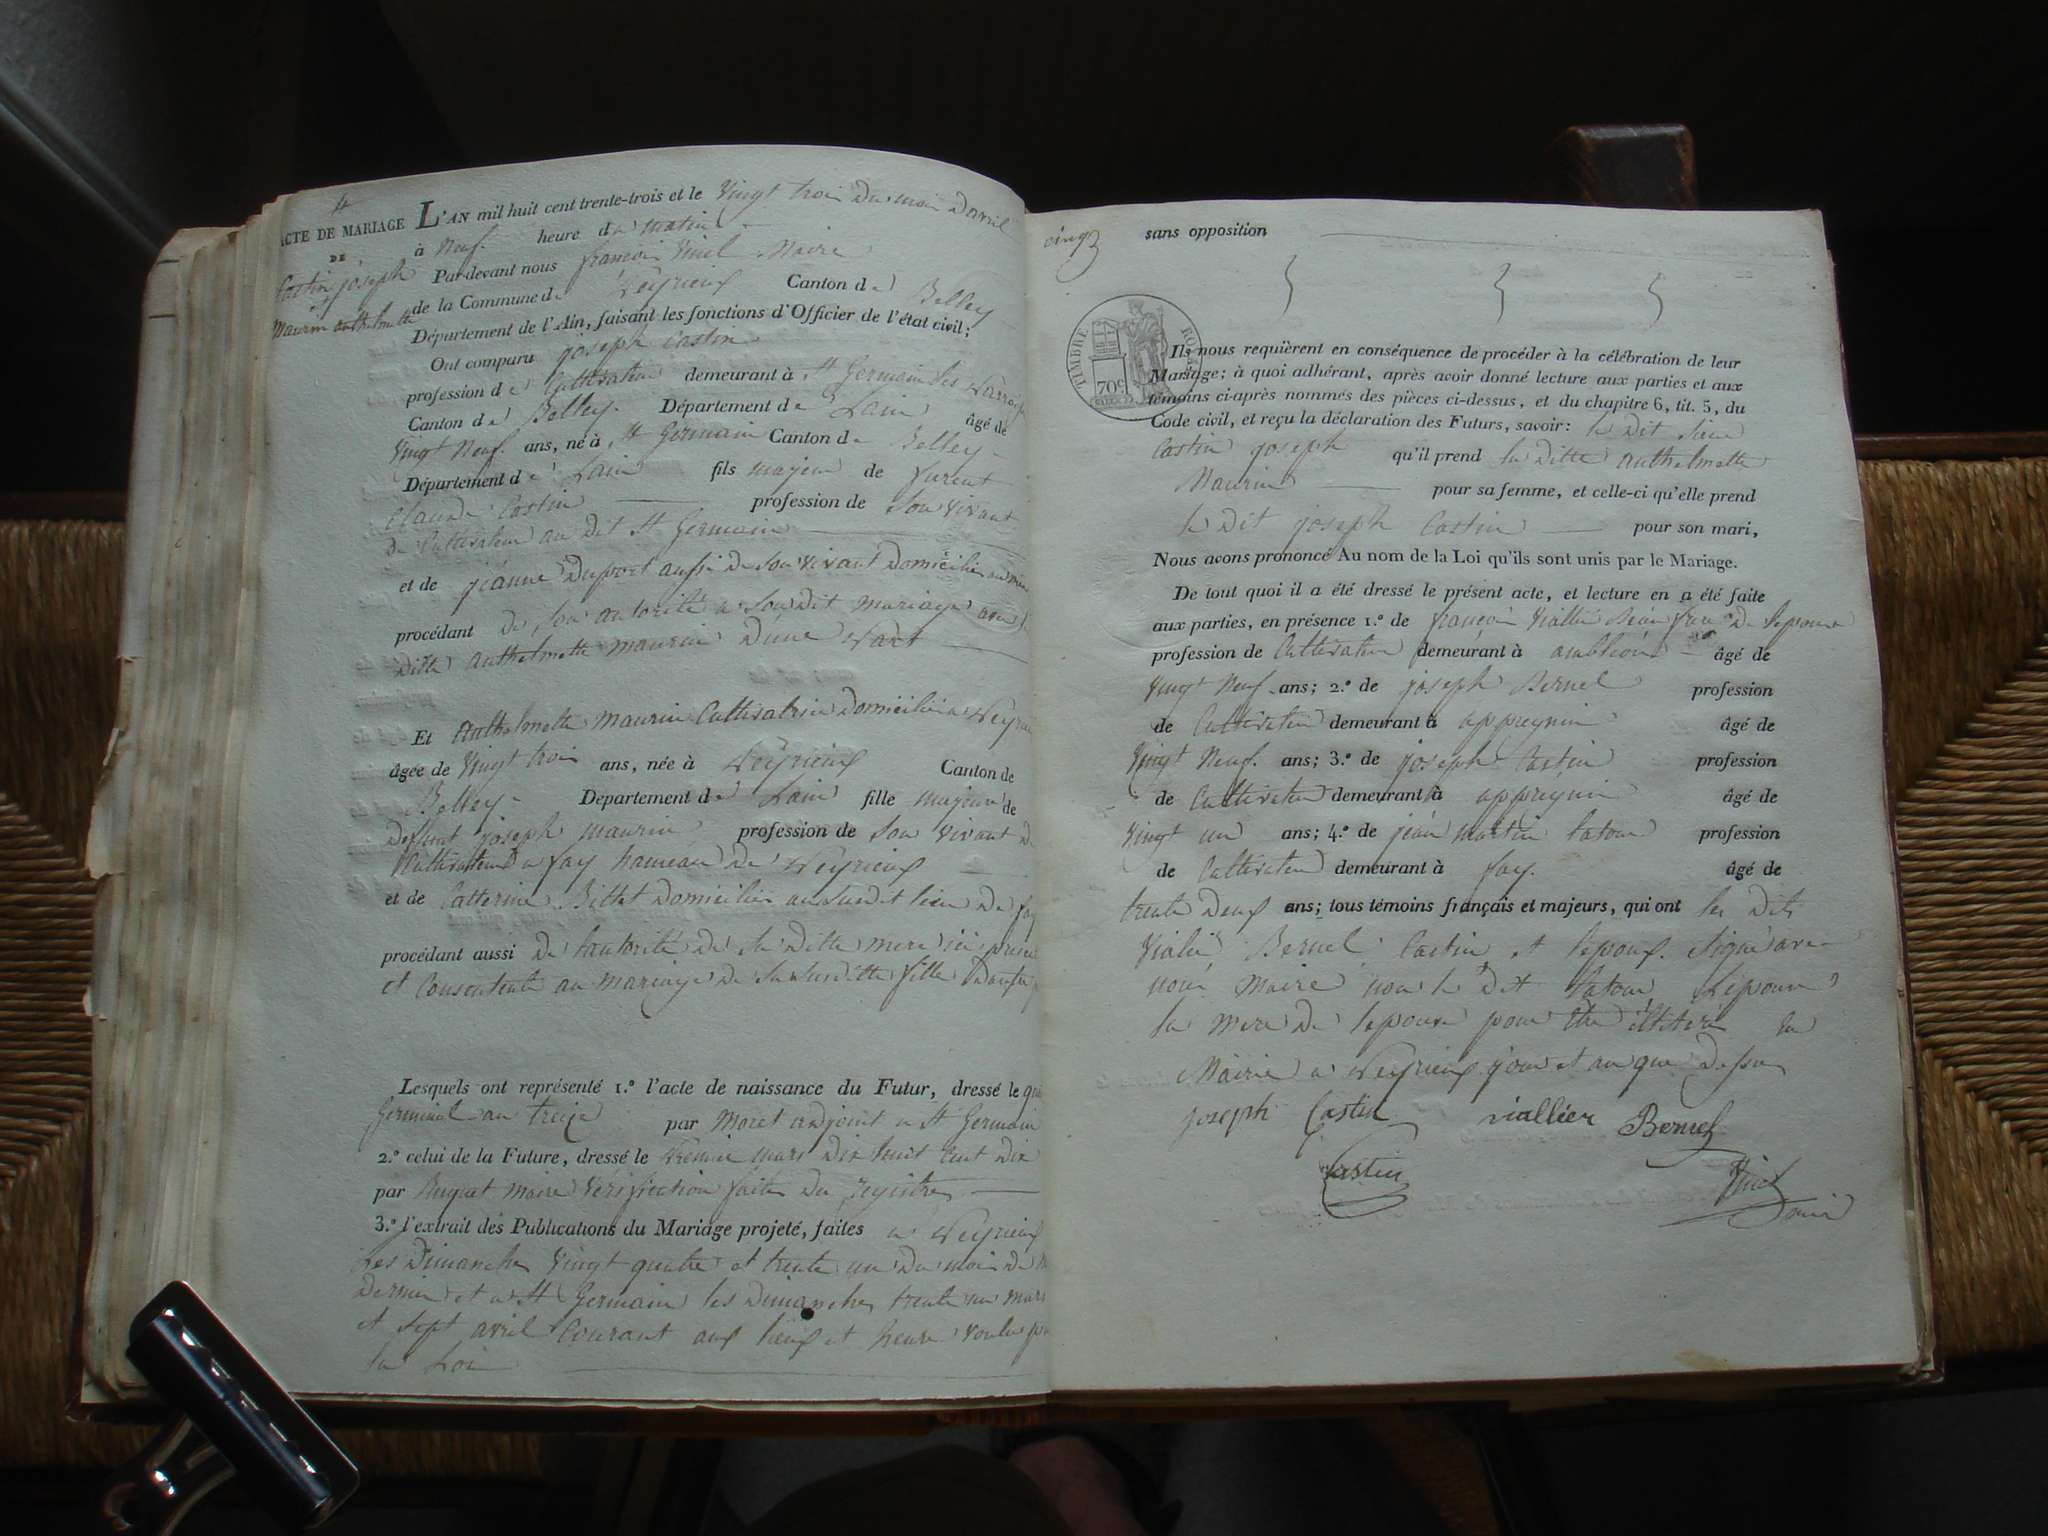 4
ACTE DE MARIAGE
DE
Castin joseph
et
Maurin anthelmette
L'AN mil huit cent trente-trois et le Vingt trois du mois davril
à Neuf heure du matin
Par-devant nous francois Vinel Maire
de la Commune de Veyrieux Canton de Belley
Département de l'Ain, faisant les fonctions d'Officier de l'état civil;
Ont comparu joseph Castin
profession de Cultivateur demeurant à St Germain les
Canton de Belley Département de Lain âgé de
Vingt Neuf ans, né à St Germain Canton de Belley
Département de Lain fils majeur de furent
Claude Castin profession de Son vivant
de Cultivateur au dit St Germain
et de jeanne Duport aussi de Son vivant domiciliée au
procédant de Son autorité a Son dit mariage avec la
ditte anthelmette maurin d'une part
Et Anthelmette maurin Cultivatrice domiciliée a
âgée de Vingt trois ans, née à Veyrieux Canton de
Belley Département de Lain fille majeure de
Deffunt joseph maurin profession de Son vivant de
Cultivateur a fay hameau de Veyrieux
et de Catterine Billet Domiciliée au Susdit lieu de fay
procédant aussi de lautorité de Sa ditte mere ici
et Consentente au mariage de Sa Susditte fille Dautre
Lesquels ont représenté 1.º l'acte de naissance du Futur, dressé le
Germinal an treize par Moret adjoint a St Germain
2.º celui de la Future, dressé le premier mars dix huit cent dix
par Maire Vériffication faite du registre
3.º l'extrait des Publications du Mariage projeté, faites a Veyrieux
Les Dimanches Vingt quatre et trente un du mois de
Dernier et a St Germain les Dimanches trente un mars
et Sept avril Courant aux lieux et heure voulus
la Loi
cinq
sans opposition
TIMBRE ROYAL
70c
Ils nous requièrent en conséquence de procéder à la célébration de leur
Mariage; à quoi adhérant, après avoir donné lecture aux parties et aux
témoins ci-après nommés des pièces ci-dessus, et du chapitre 6, tit. 5, du
Code civil, et reçu la déclaration des Futurs, savoir: le dit Sieur
Castin joseph qu'il prend la ditte anthelmette
Maurin pour sa femme, et celle-ci qu'elle prend
le dit joseph Castin pour son mari,
Nous avons prononcé Au nom de la Loi qu'ils sont unis par le Mariage.
De tout quoi il a été dressé le présent acte, et lecture en a été faite
aux parties, en présence 1.º de francois Viallier Beau frere de lepouse
profession de Cultivateur demeurant à ambléon âgé de
Vingt Neuf ans; 2.º de joseph Bernel profession
de Cultivateur demeurant à appregnin âgé de
Vingt Neuf ans; 3.º de joseph Castin profession
de Cultivateur demeurant à appregnin âgé de
Vingt un ans; 4.º de jean martin Latour profession
de Cultivateur demeurant à fay âgé de
trente deux ans; tous témoins français et majeurs, qui ont les dits
Viallié Bernel Castin et lepoux Signé avec
nous Maire non le dit Latour Lepouse
la mere de lepouse pour être illiteré En
Mairie a Veyrieux jour et an que dessus
joseph Castin viallier Bernel
Castin Vinel
Maire